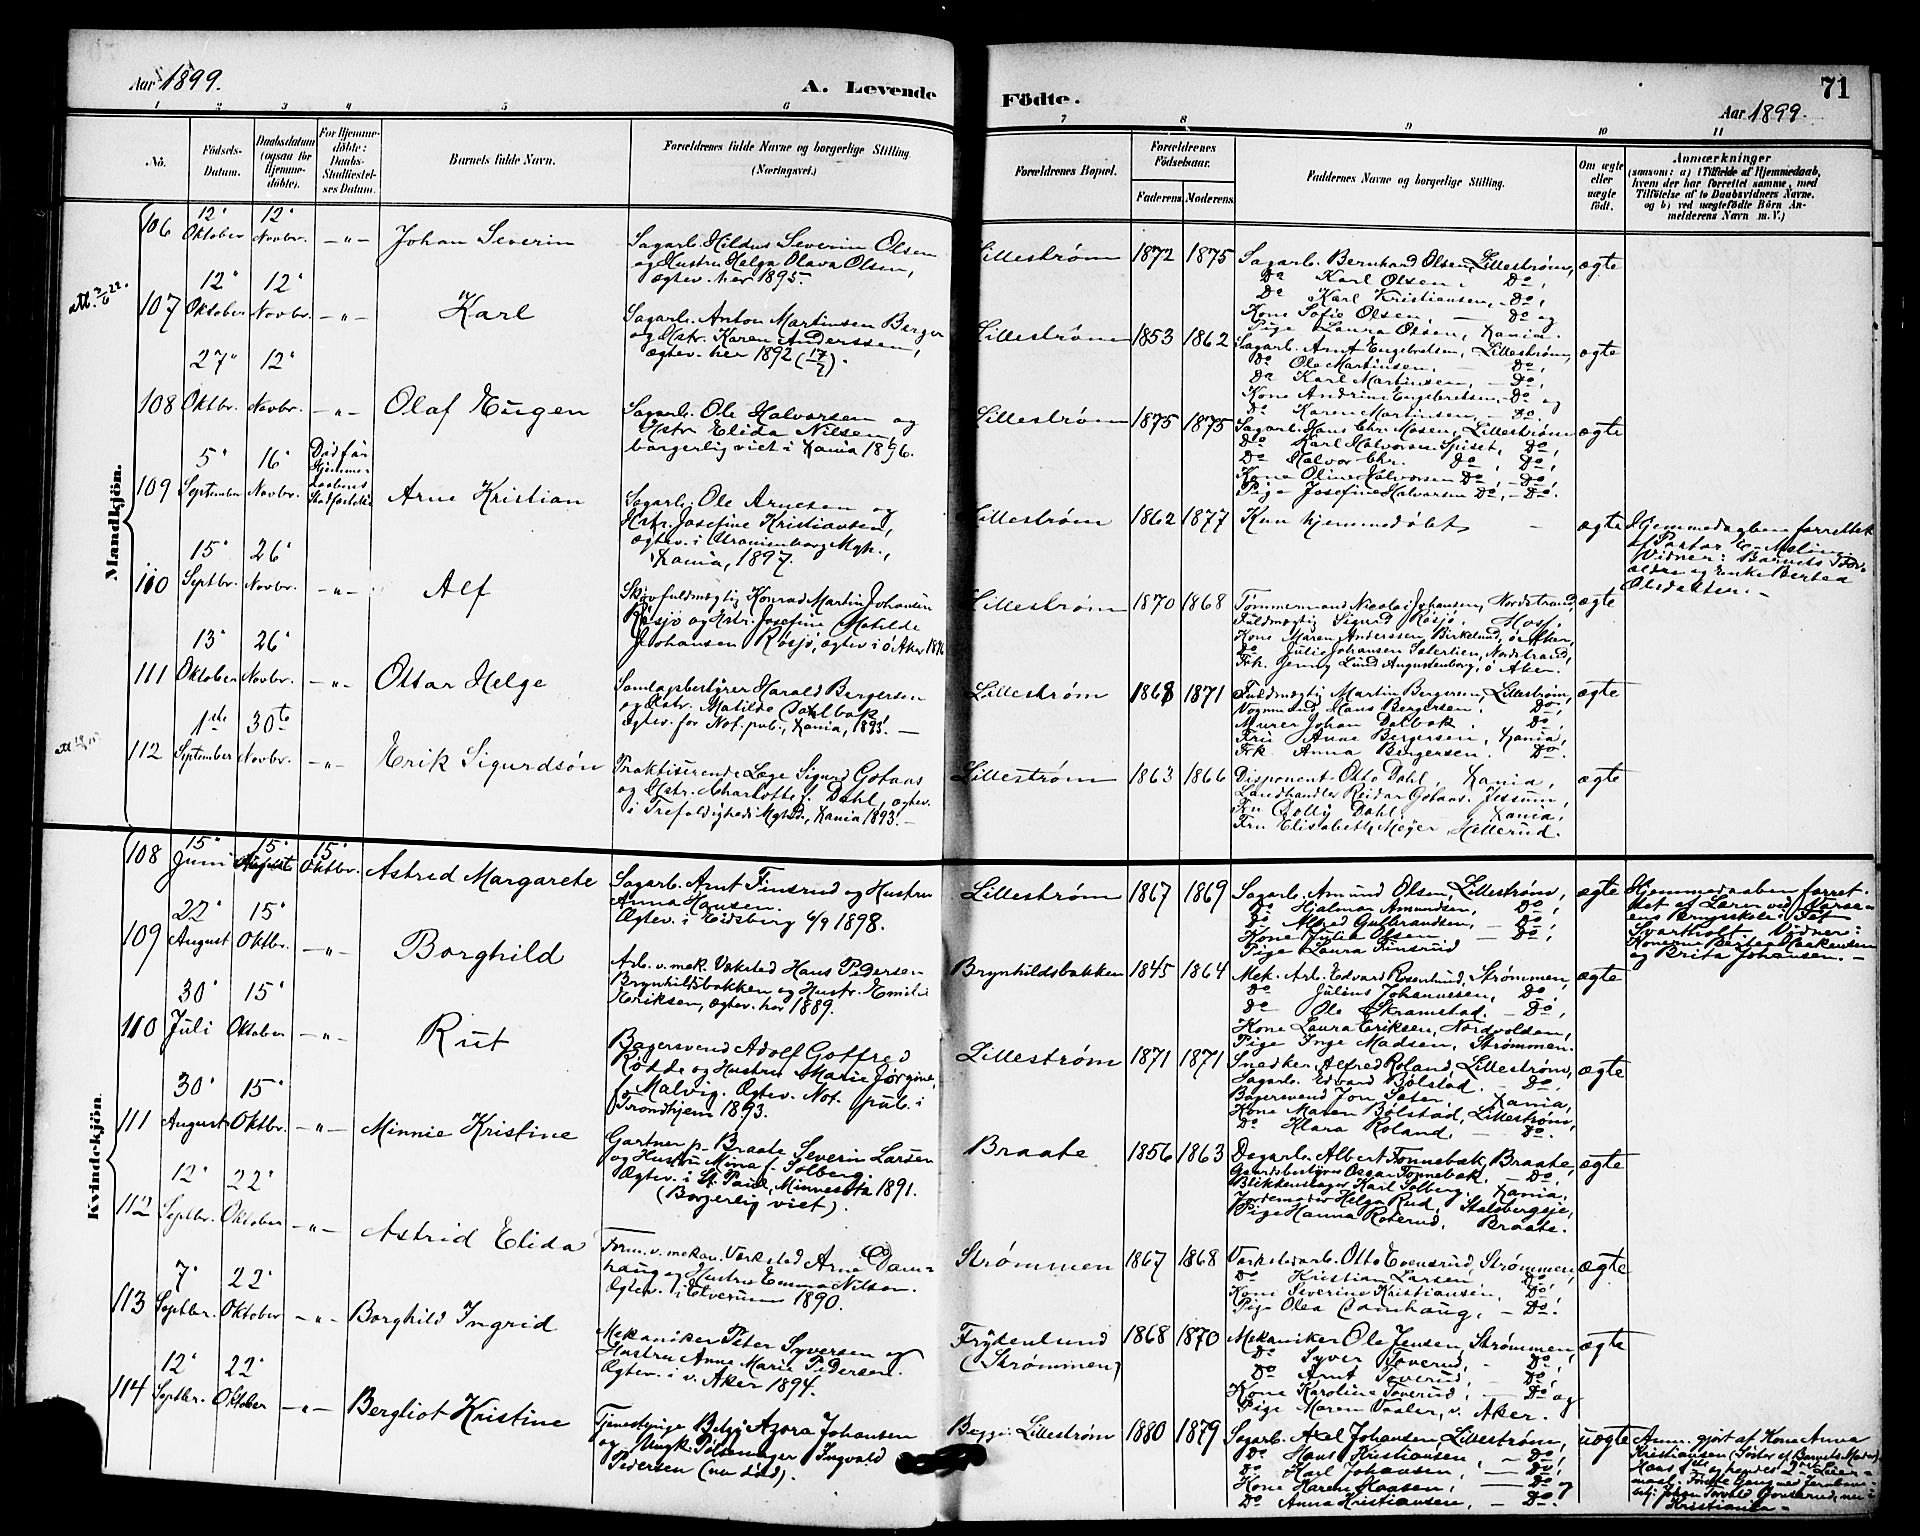 Aar 1899.
A. Levende
Födte.
71
Aar 1899.
1 2 3 4 5 6 7 8 9 10 11
No.
Födsels-
Datum.
Daabsdatum
(ogsaa for
Hjemme-
döbte).
For Hjemme-
döbte:
Daabs-
Stadfæstel-
ses Datum.
Barnets fulde Navn.
Forældrenes fulde Navne og borgerlige Stilling
(Næringsvei.)
Forældrenes Bopæl.
Forældrenes
Födselsaar.
Faderens Moderens
Faddernes Navne og borgerlige Stilling.
Om ægte
eller
uægte
født.
Anmærkninger
(saasom: a) i Tilfælde af Hjemmedaab,
hvem der har forrettet samme, med
Tilföielse af to Daabsvidners Navne.
og b) ved uægtefödte Börn An-
melderens Navn m. V.)
Mandkjön.
106 12' Oktober 12' Novbr. Johan Severin
Sagarb. Hildus Severin Olsen
og Hustru Helga Olava Olsen,
ægtev. her 1895.
Lillestrøm 1872 1875
Sagarb. Bernhard Olsen, Lillestrøm,
Do Karl Olsen, Do,
Do Karl Kristiansen, Do,
Kone Sofie Olsen, Do og
Pige Laura Olsen, Xania.
ægte
107 12' Oktober 12' Novbr. Karl
Sagarb. Anton Martinsen Berger
og Hstr. Karen Anderssen,
ægtev. her 1892 (17/7).
Lillestrøm 1853 1862
Sagarb. Arnt Engebretsen, Lillestrøm,
Do Ole Martinsen, Do,
Do Karl Martinsen, Do,
Kone Andrine Engebretsen, Do og
Do Karen Martinsen, Do.
ægte
108 27' Oktbr. 12' Novbr. Olaf Eugen
Sagarb. Ole Halvorsen og
Hstr. Elida Nilsen,
borgerlig viet i Xania 1896.
Lillestrøm 1875 1875
Sagarb. Hans Chr. Mosen, Lillestrøm
Do Karl Halvorsen Spiset, Do,
Do Halvor Chr. Do, Do,
Kone Oline Halvorsen Do, Do,
Pige Josefine Halvorsen Do, Do.
ægte
109 5' September 16' Novbr. Død før
Hjemme-
daabens
Stadfæstelse
Arne Kristian
Sagarb. Ole Arnesen og
Hstr. Josefine Kristiansen,
ægtev. i Uranienborg Mgh.,
Xania, 1897.
Lillestrøm 1862 1877
Kun hjemmedøbt
ægte
Hjemmedaaben forrettet
af Pastor
Vidner: Barnets For-
ældre og Enke Bertea
Olsdatter.
110 15' Septbr. 26' Novbr. Alf
Skovfuldmægtig Konrad Martin Johansen
Røsjø og Hstr. Josefine Matilde
Johansen Røsjø, ægtev. i ø. Aker 1896
Lillestrøm 1870 1868
Tømmermand Nicolai Johansen, Nordstrand,
Fuldmægtig Sigurd Røsjø.
Kone Maren Anderssen, Birkelund, ø. Aker,
Do Julie Johansen Sæterlien, Nordstrand,
Frk. Jenny Lund Augustenborg, ø. Aker.
ægte
111 13' Oktober 26' Novbr. Ottar Helge
Samlagsbestyrer Harald Bergersen
og Hstr. Matilde Dahlbak,
ægtev. for Not. pub., Xania, 1893.
Lillestrøm 1868 1871
Fuldmægtig Martin Bergersen, Lillestrøm,
Vognmand Hans Bergersen. Do,
Murer Johan Dalbak. Do,
Fru Anne Bergersen, Xania,
Frk. Anna Bergersen. Do.
ægte
112 1ste September 30te Novbr. Erik Sigurdsøn
Praktiserende Læge Sigurd Gotaas
og Hstr. Charlotte f. Dahl, ægtev.
i Trefoldigheds Mghd, Xania 1893.
Lillestrøm 1863 1866
Disponent Otto Dahl, Xania,
Landhandler Reidar Gotaas, Jessum,
Fru Dolly Dahl, Xania,
Fru Elisabeth Meyer Hellerud.
ægte
Kvindekjön.
108 15' Juni 15' August 15' Oktbr. Astrid Margarete
Sagarb. Arnt Finsrud og Hustru
Anna Hansen.
Ægtev. i Eidsberg 6/9 1898.
Lillestrøm 1867 1869
Sagarb. Amund Olsen, Lillestrøm,
Do Hjalmar Amundsen, Do,
Do Alfred Gulbrandsen, Do,
Kone Julie Olsen Do,
Pige Laura Finsrud
ægte
Hjemmedaaben forret-
tet af Lærer ved
ens Brugsskole i Fet
Svartholt. Vidner:
Konerne Bertea Haakensen
og Brita Johansen.
109 22' August 15' Oktbr. Borghild
Arb. v. mek. Værksted Hans Pedersen
Brynhildsbakken og Hustr. Emilie
Eriksen, ægtev. her 1889.
Brynhildsbakken 1845 1864
Mek. Arb. Edvard Rosenlund, Strømmen,
Do Julius Johannesen, Do,
Do Ole Skramstad. Do,
Kone Laura Eriksen, Nordvolden,
Pige Inge Madsen, Strømmen.
ægte
110 30' Juli 15' Oktober Rut
Bagersvend Adolf Gotfred
Rødde og Hustru Marie Jørgine
f. Malvig. Ægtev. Not. pub. i
Trondhjem 1893.
Lillestrøm 1871 1871
Snedker Alfred Roland, Lillestrøm,
Sagarb. Edvard Bølstad. Do,
Bagersvend Jon Sæter, Xania,
Kone Maren Bølstad, Lillestrøm,
Do Klara Roland. Do.
ægte
111 30' August 15' Oktbr. Minnie Kristine
Gartner p. Braate Severin Larsen
og Hustru Mina f. Solberg.
Ægtev. i St. Paul, Minnesota 1891.
(Borgerlig viet).
Braate 1856 1863
Dagarb. Albert Tonnebæk, Braate,
Gaardsbestyrer Oscar Tonnebæk. Do,
Blikkenslager Karl Solberg. Xania,
Jordemoder Helga Rud, Stalsbergeie,
Pige Hanna Roterud, Braate.
ægte
112 12' Septbr. 22' Oktober Astrid Elida
Form. v. mekan. Værksted Arne Dam-
haug og Hustru Emma Nilsen.
Ægtev. i Elverum 1890.
Strømmen 1867 1868
Værkstedarb. Otto Evensrud, Strømmen,
Do Kristian Larsen Do,
Kone Severine Kristiansen, Do,
Pige Olea Damhaug, Do.
ægte
113 7' Septbr. 22' Oktober Borghild Ingrid
Mekaniker Peter Syversen og
Hustru Anne Marie Pedersen.
Ægtev. i v. Aker 1894.
Frydenlund
(Strømmen)
1868 1870
Mekaniker Ole Jensen, Strømmen,
Do Syver Toverud, Do,
Do Arnt Toverud, Do,
Kone Karoline Toverud, Do, og
Pige Maren Vaaler, v. Aker.
ægte
114 12' Septbr. 22' Oktober Bergliot Kristine
Tjenestepige Betzy Azora Johansen
og Ungk. Pølsemager Ingvald
Pedersen (nu død).
Begge: Lillestrøm 1880 1879
Sagarb. Axel Johansen, Lillestrøm,
Do Hans Kristiansen, Do,
Do Karl Johansen, Do,
Kone Karen Hansen, Do og
Do Anna Kristiansen, Do.
uægte
Anm. gjort af Kone Anna
Kristiansen (Søster af Barnets Moder).
Kristiania.